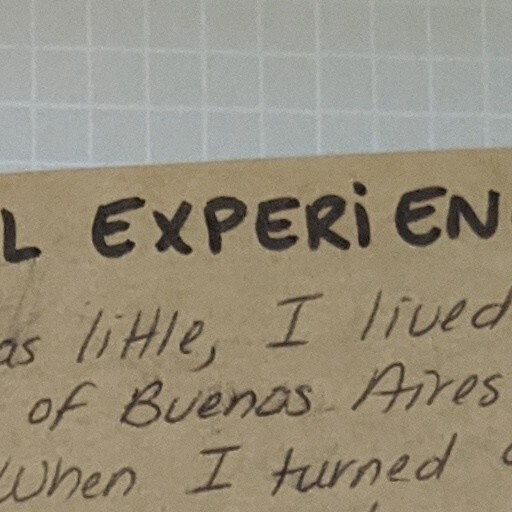 L EXPERiEN
as little, I lived
of Buenos Aires
When I turned